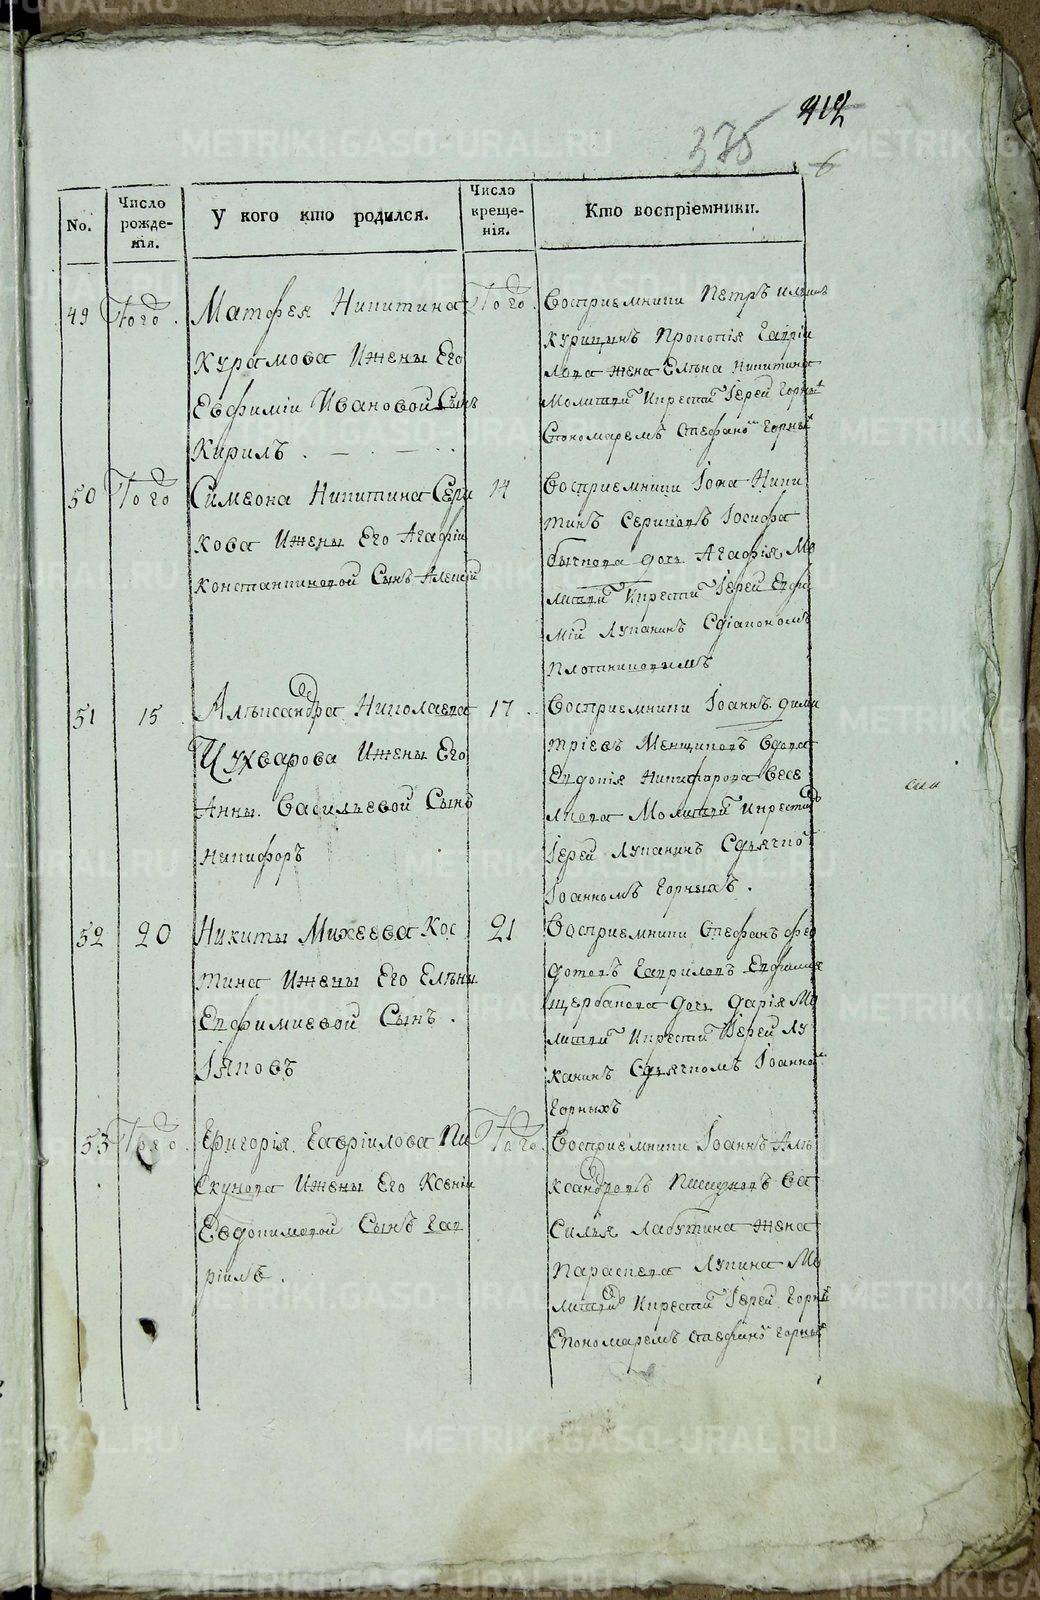 412
375
No.
Число рожде-нія.
У кого кто родился.
Число креще-нія.
Кто воспріемники.
49
Того.
Матфея Никитина
Курамова Ижены Его
Евфиміи Ивановой Сынъ
Кирилъ.
Того.
Восприемники Петръ
Курицынъ Прокопія Гавріи
лова жена Елѣна Никитина
Молитви Икрести Іерей Горны
Спономаремъ Стефано Горны
50
Того
Симеона Никитина Сери
кова Ижены Его Агафіи
Константиновой Сынъ Алексій
14
Восприемники Іона Ники
тинъ Сериковъ Іосифа
бычкова дочь Агафія Мо
литви Икрести Іерей Евфи
мій Лупанинъ Сдіакономъ
Плотниковымъ
51
15
Алѣксандра Николаева
Цухварова Ижены Его
Анны Васильевой Сынъ
Никифоръ
17
Восприемники Іоаннъ дими
тріевъ Менщиковъ вдова
Евдокія Никифорова Весе
лкова Молитви Икрести
Іерей Лупанинъ Сдьячко
Іоанномъ Горныхъ.
52
20
Никиты Михеева Кос
тина Ижены Его Елѣны
Евфимиевой Сынъ.
Іяковъ
21
Восприемники Стефанъ Фео
дотовъ Гавриловъ Евфимия
щербакова дочь Дарія Мо
литви Икрести Іерей Лу
канинъ Сдьячкомъ Іоанно
Горныхъ
53
Того.
Григорія Гавріилова Пи
скунова Ижены Его Ксеніи
Евдокимовой Сынъ Гав
ріилъ.
Того.
Восприемники Іоаннъ Алѣ
ксандровъ Пискуновъ Ва
силья Лабутина жена
Параскева Лукина Мо
литви Икрести Іерей Горны
Спономаремъ Стефано Горны
METRIKI.GASO-URAL.RU